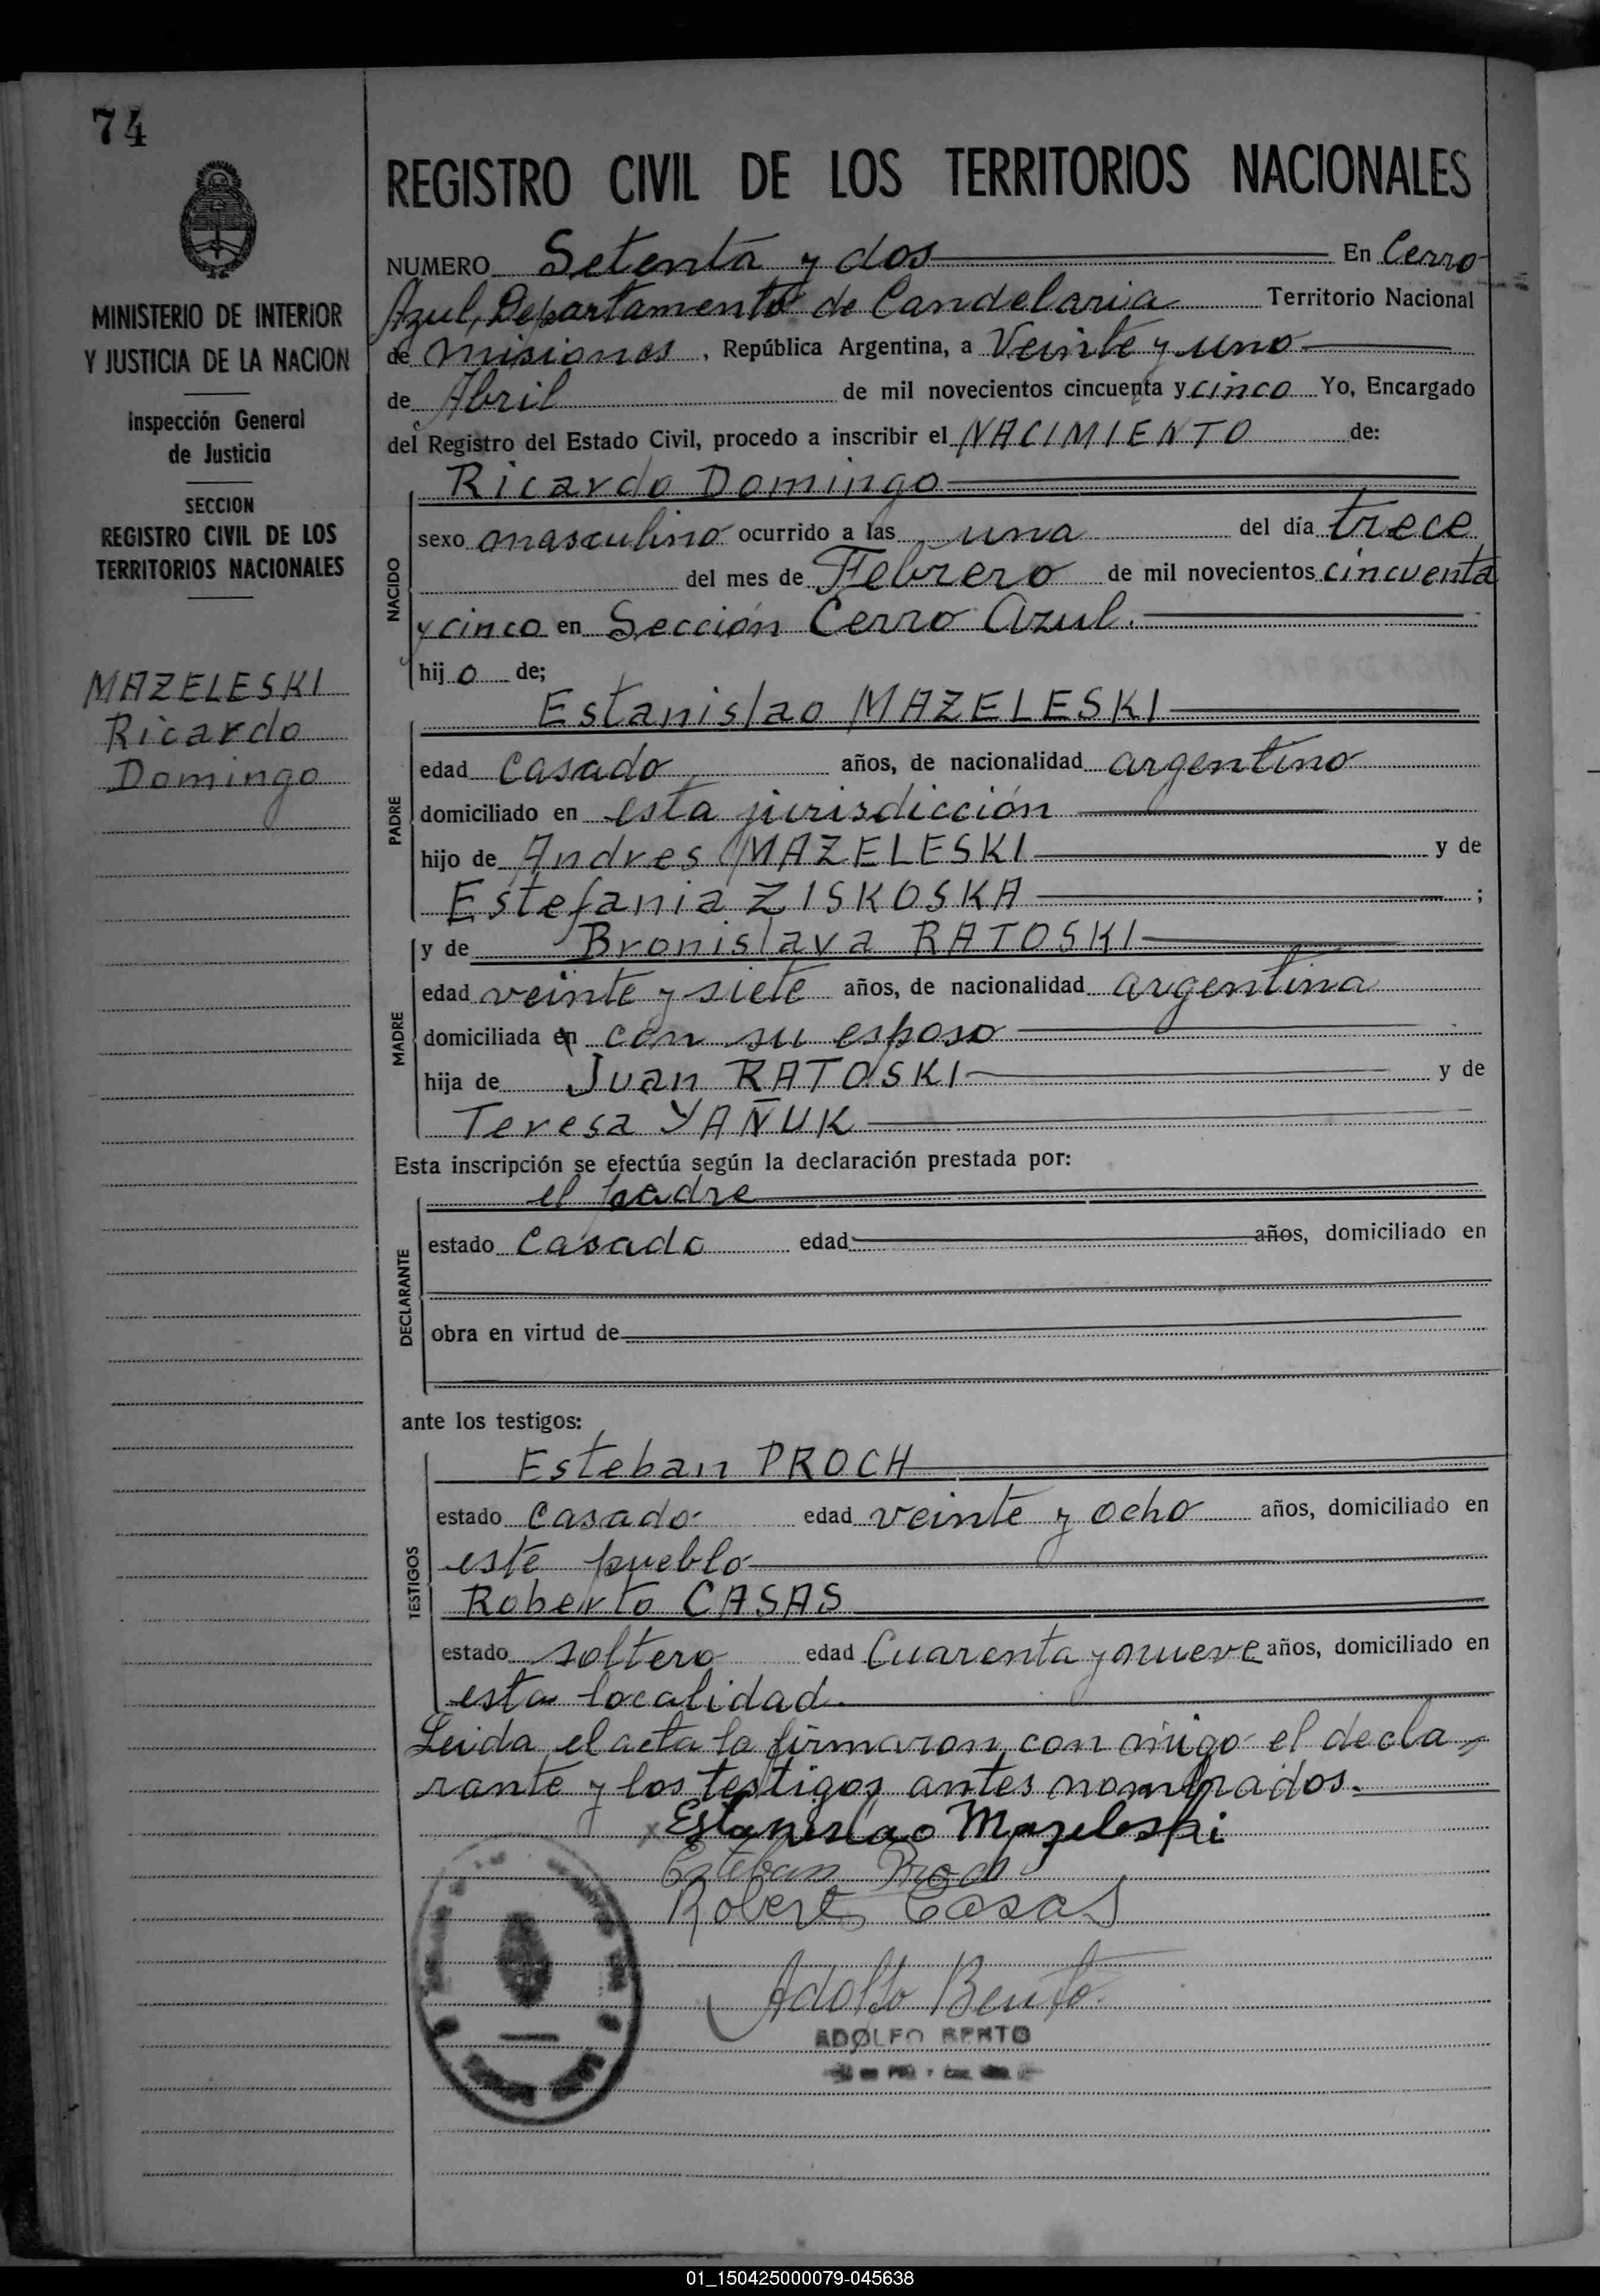 74
MINISTERIO DE INTERIOR
Y JUSTICIA DE LA NACION
Inspección General
de Justicia
SECCION
REGISTRO CIVIL DE LOS
TERRITORIOS NACIONALES
MAZELESKI
Ricardo
Domingo
REGISTRO CIVIL DE LOS TERRITORIOS NACIONALES
NUMERO Setenta y dos En Cerro
Azul, Departamento de Candelaria Territorio Nacional
de Misiones, República Argentina, a Veinte y uno
de Abril de mil novecientos cincuenta y cinco Yo, Encargado
del Registro del Estado Civil, procedo a inscribir el NACIMIENTO de:
Ricardo Domingo
NACIDO
sexo masculino ocurrido a las una del día trece
del mes de Febrero de mil novecientos cincuenta
y cinco en Sección Cerro Azul.
hijo de;
Estanislao MAZELESKI
PADRE
edad casado años, de nacionalidad argentino
domiciliado en esta jurisdicción
hijo de Andres MAZELESKI y de
Estefania ZISKOSKA ;
y de Bronislava RATOSKI
MADRE
edad veinte y siete años, de nacionalidad argentina
domiciliada en con su esposo
hija de Juan RATOSKI y de
Teresa YAÑUK
Esta inscripción se efectúa según la declaración prestada por:
el padre
DECLARANTE
estado Casado edad años, domiciliado en
obra en virtud de
ante los testigos:
Esteban PROCH
TESTIGOS
estado Casado edad veinte y ocho años, domiciliado en
este pueblo
Roberto CASAS
estado soltero edad Cuarenta y nueve años, domiciliado en
esta localidad.
Leida el acta la firmaron con migo el decla
rante y los testigos antes nombrados.
Estanislao Mazeleski
Esteban Proch
Roberto Casas
Adolfo Bento
ADOLFO BENTO
01_150425000079-045638